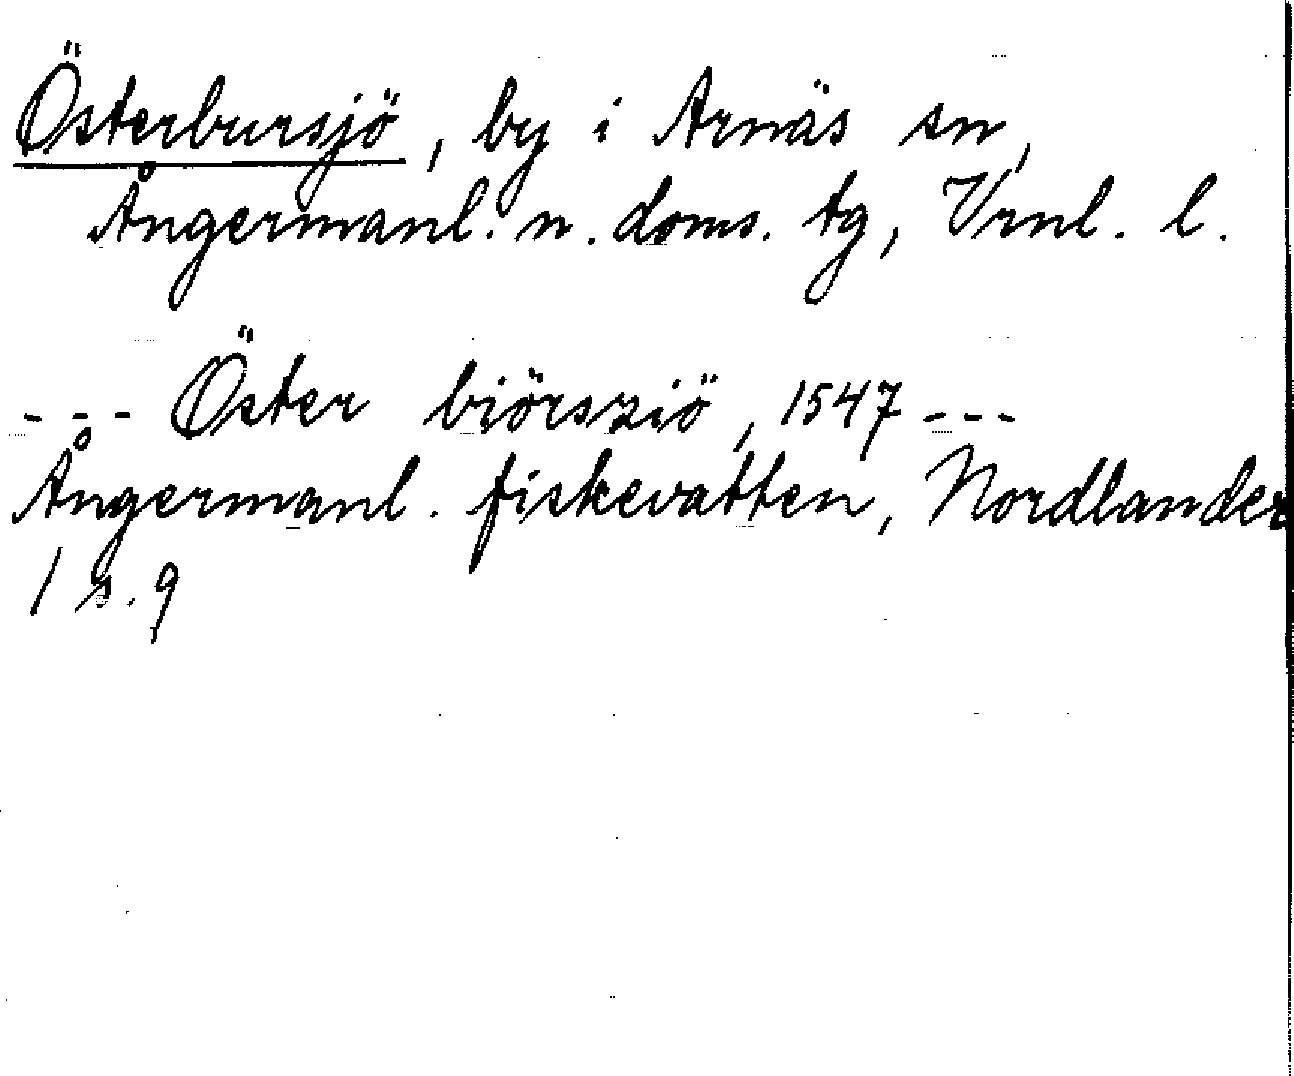 Österbursjö, by i Arnäs sn,
Ångermanl. n. doms. tg, Vrnl. l.
--- Öster biörsziö, 1547 ---
Ångermanl. fiskevatten, Nordlander
1 s. 9